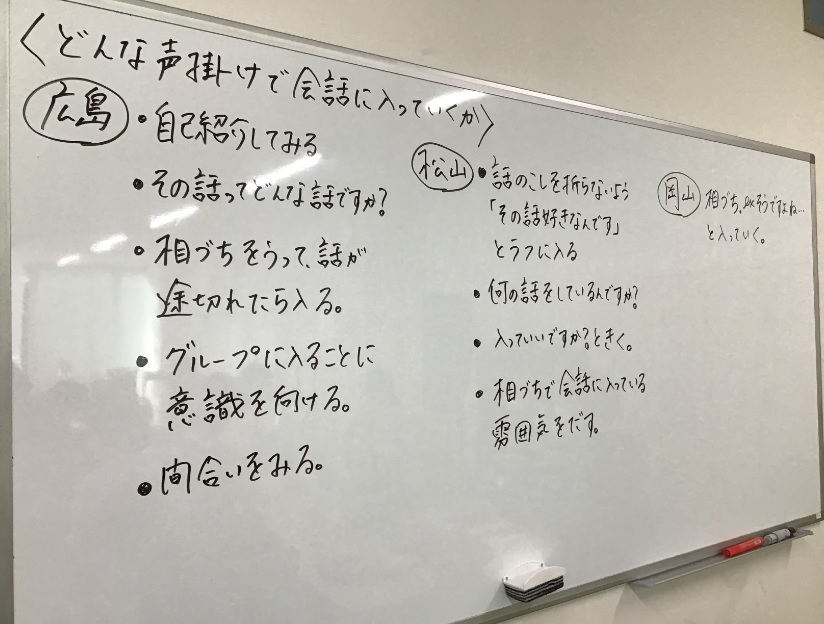 〈どんな声掛けで会話に入っていくか〉
広島
・自己紹介してみる
・その話ってどんな話ですか?
・相づちをうって、話が
途切れたら入る。
・グループに入ることに
意識を向ける。
・間合いをみる。
松山
・話のこしを折らないよう
「その話好きなんです」
とうフに入る
・何の話をしているんですか?
・入っていいですか?ときく。
・相づちで会話に入っている
雰囲気をだす。
岡山
相づち、exそうですよね…
と入っていく。